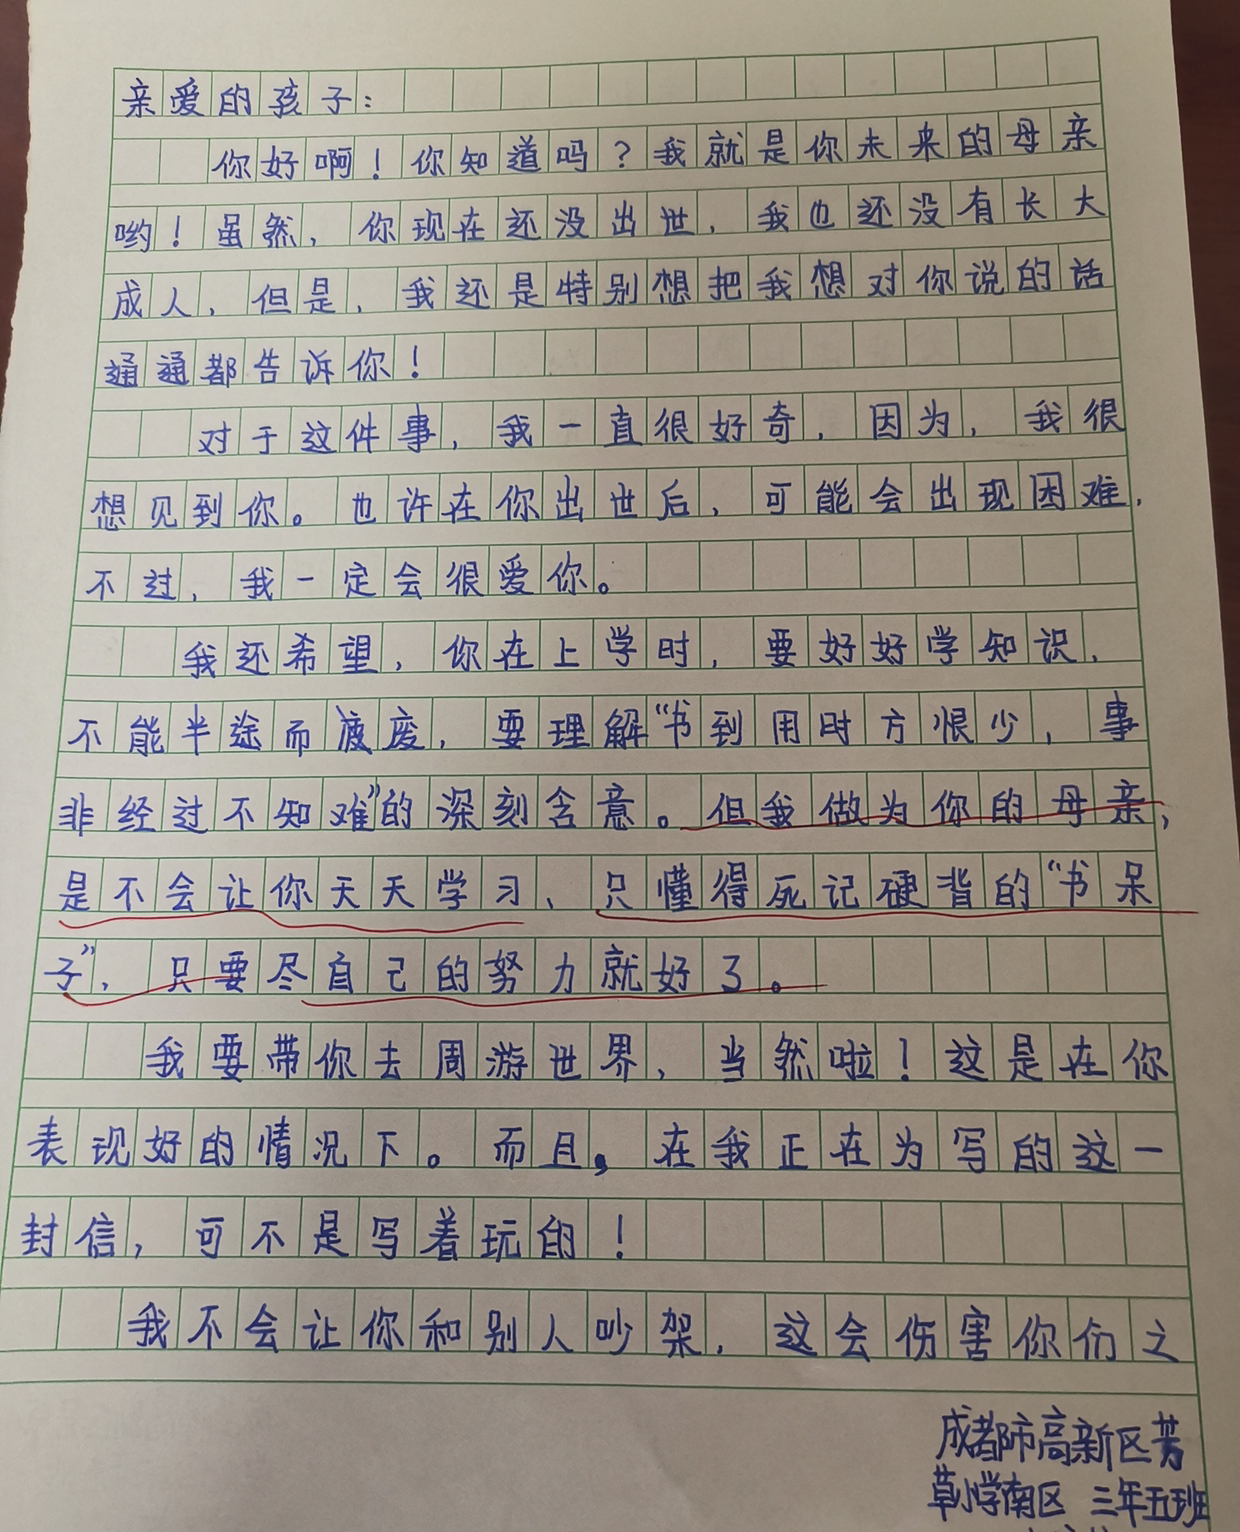 亲爱的孩子：
你好啊！你知道吗？我就是你未来的母亲
哟！虽然，你现在还没出世，我也还没有长大
成人，但是，我还是特别想把我想对你说的话
通通都告诉你！
对于这件事，我一直很好奇，因为，我很
想见到你。也许在你出世后，可能会出现困难，
不过，我一定会很爱你。
我还希望，你在上学时，要好好学知识，
不能半途而废，要理解“书到用时方恨少，事
非经过不知难”的深刻含意。但我做为你的母亲，
是不会让你天天学习、只懂得死记硬背的“书呆
子”，只要尽自己的努力就好了。
我要带你去周游世界，当然啦！这是在你
表现好的情况下。而且，在我正在为写的这一
封信，可不是写着玩的！
我不会让你和别人吵架，这会伤害你们之
成都市高新区芳
草小学南区 三年五班